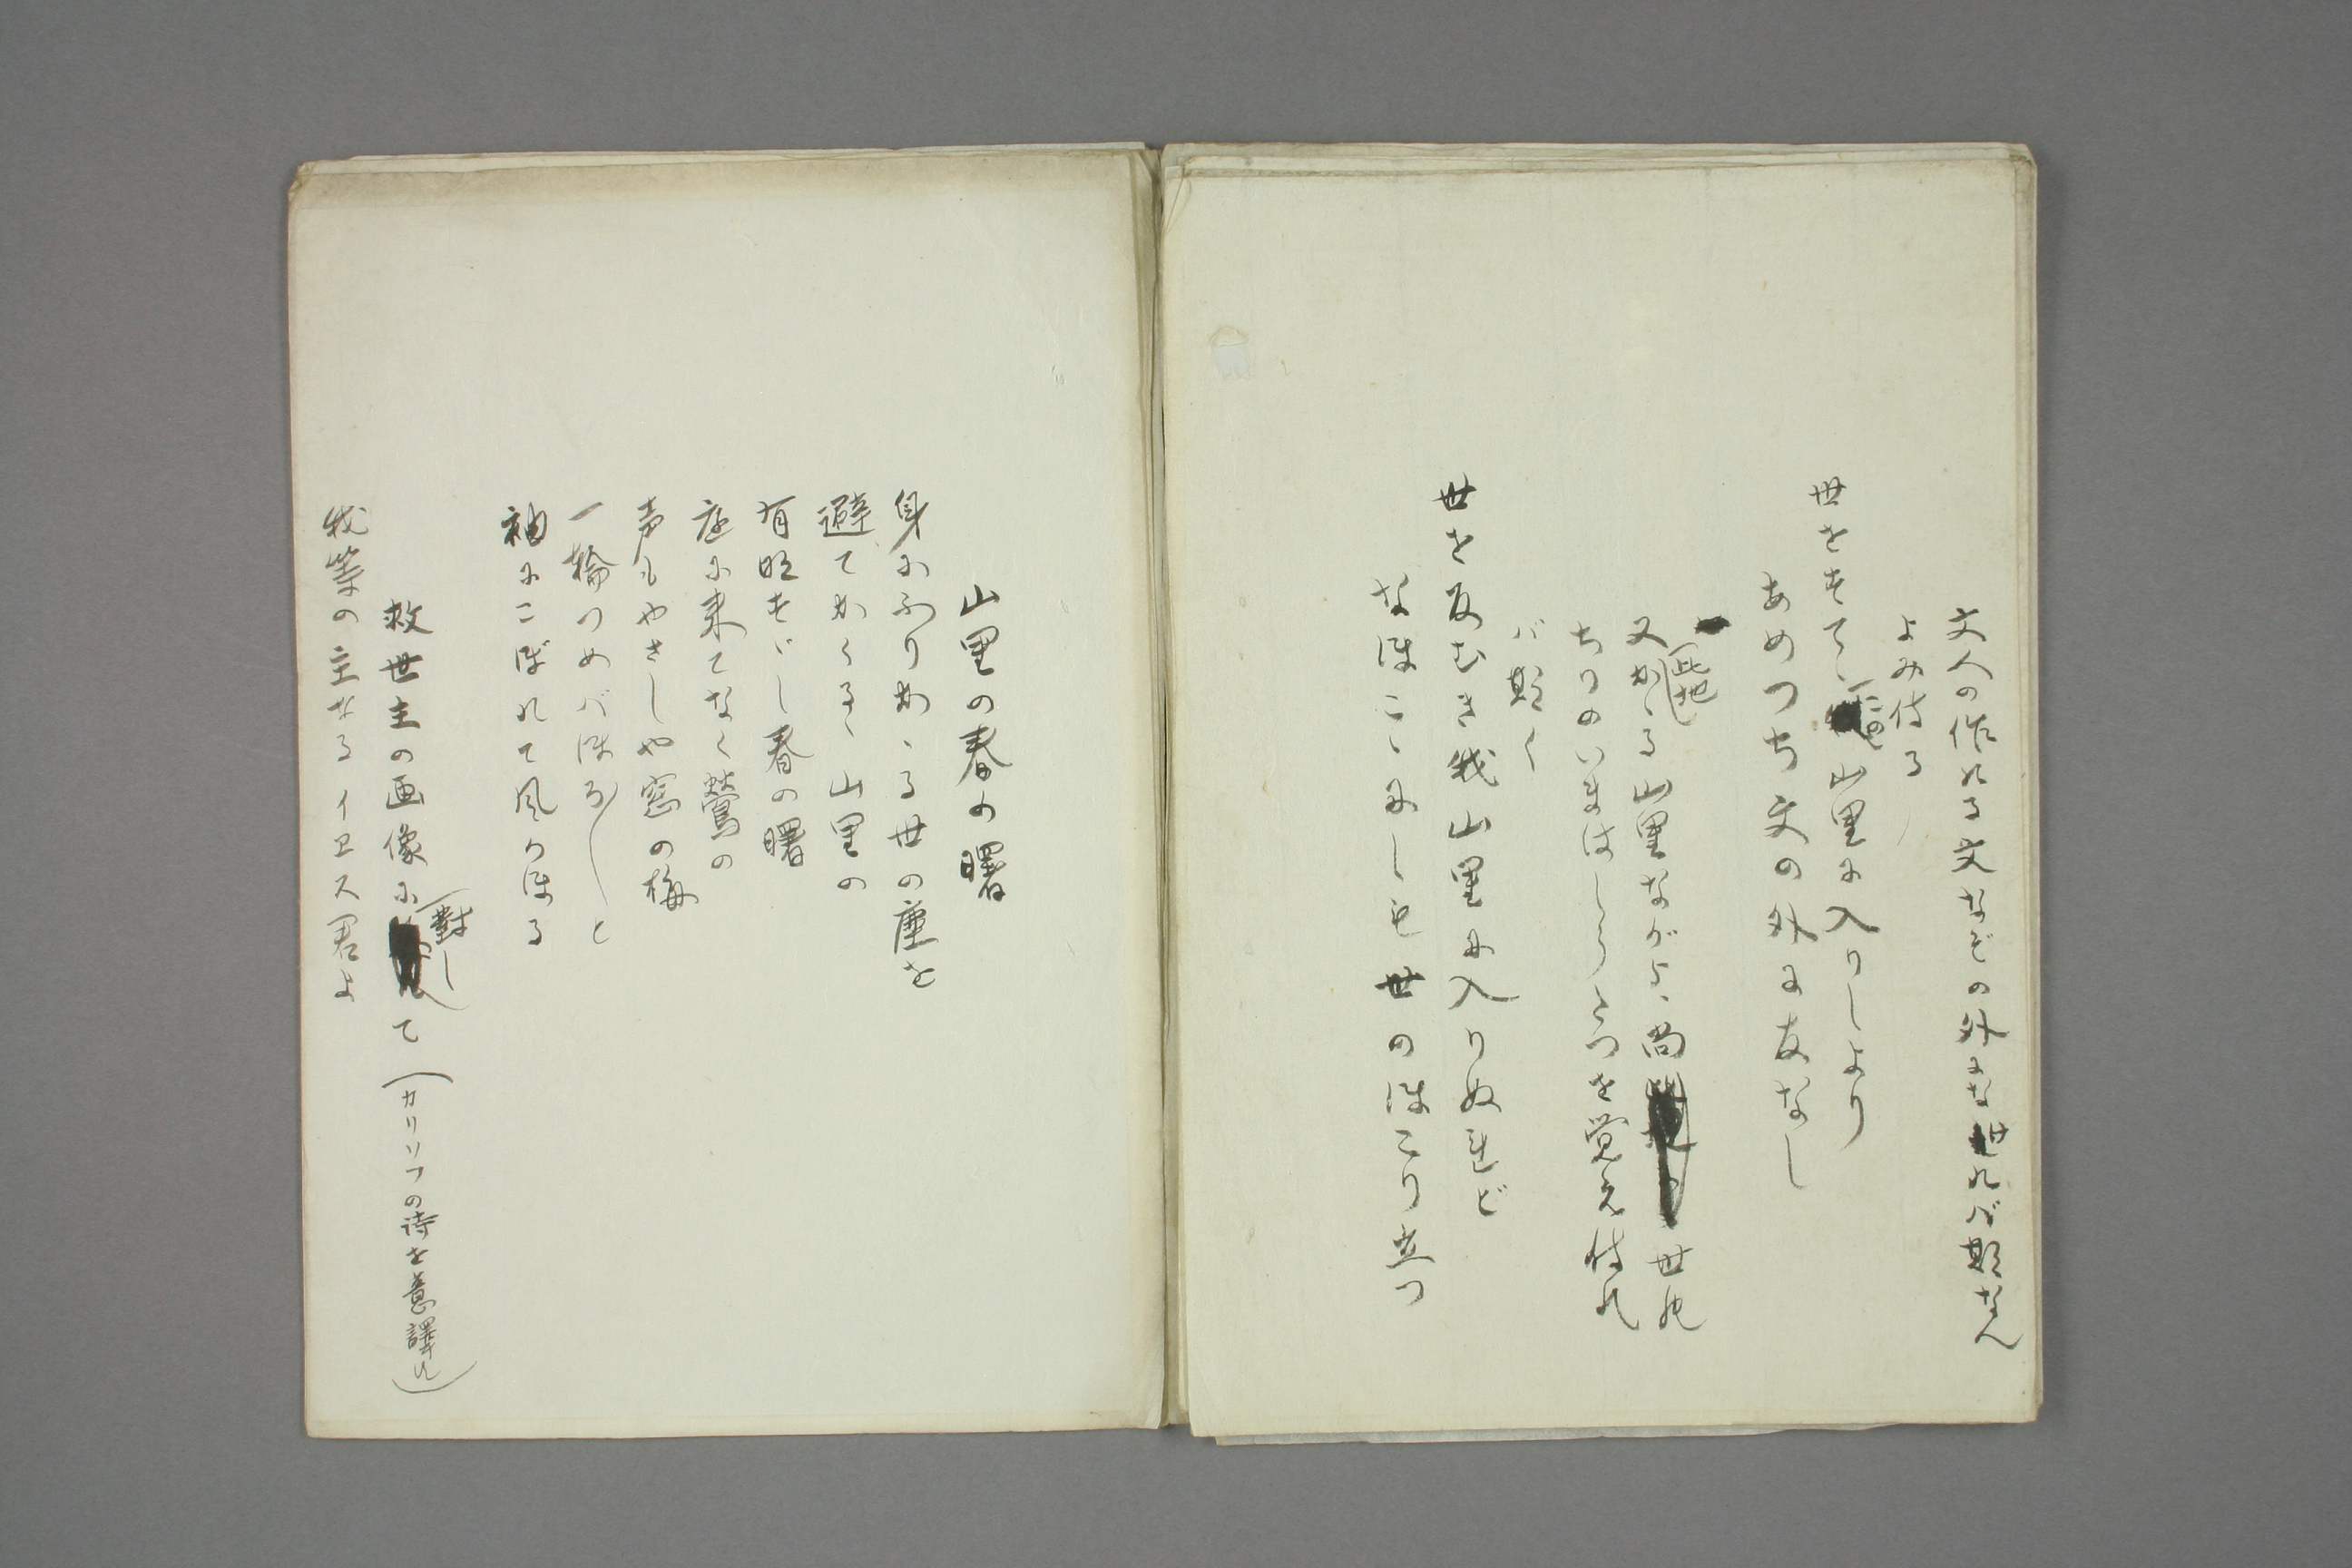 文人の作れる文などの外になければ斯なん
よみ侍る
世をすてゝこの山里に入りしより
あめつち文の外に友なし
又此地かゝる山里ながら、尚世の
ちりのいまはしきを覚え侍れ
バ斯く
世を反むき我山里に入りぬれど
なほこゝにしも世のほこり立つ
山里の春の曙
身にふりかゝる世の塵を
避てかくるゝ山里の
有明すごし春の曙
庭に来てなく鶯の
声もやさしや窓の梅
一輪つめばほろ〳〵と
袖にこぼれて風かほる
救世主の画像に對して(カリソフの詩を意譯ス)
我等の主なるイエス君よ